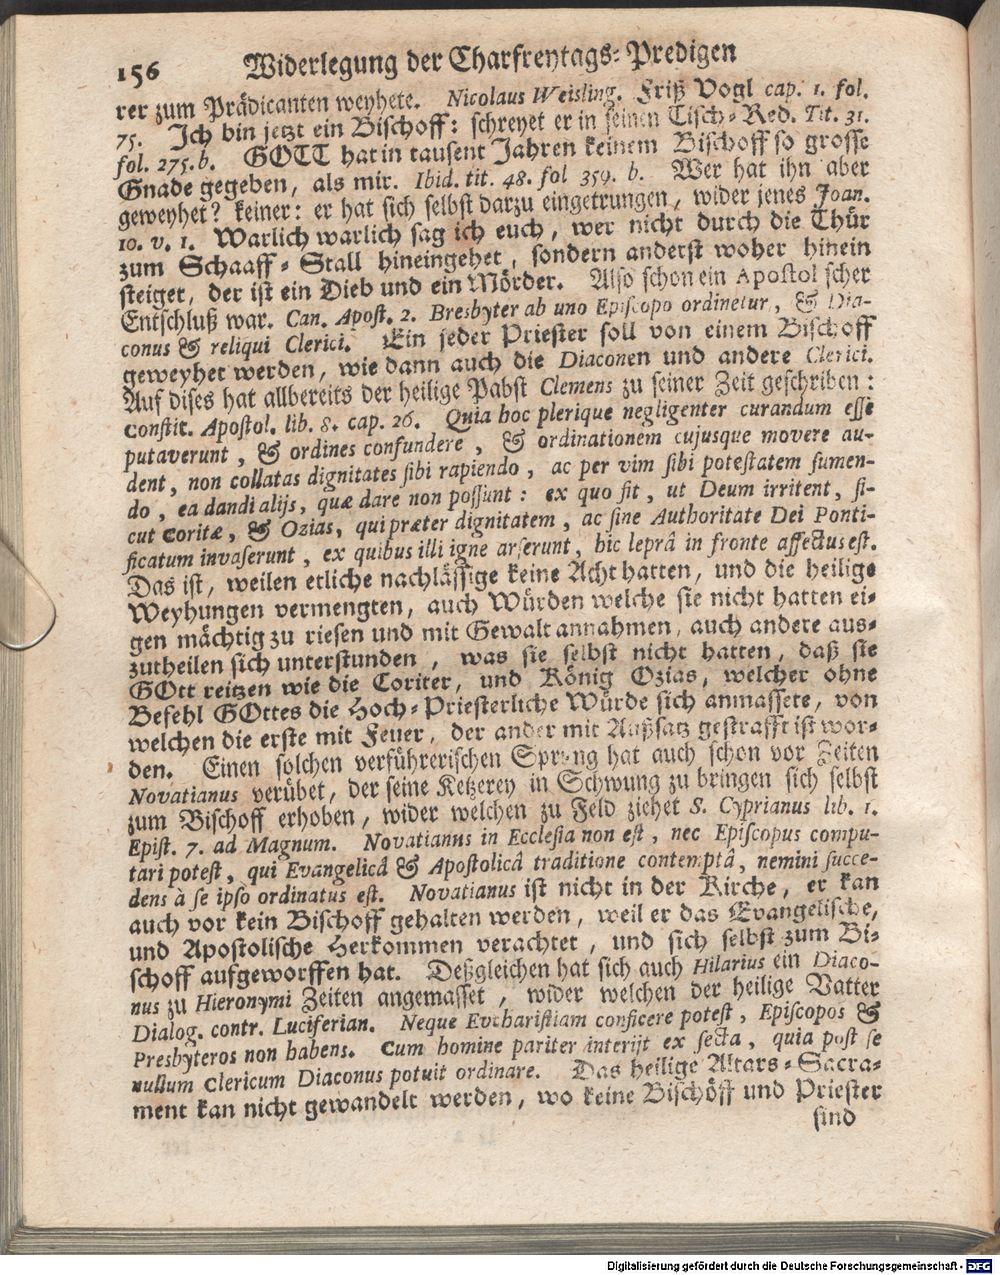 156 Widerlegung der Charfreytags-Predigen
rer zum Prädicanten weyhete. Nicolaus Weisling. Friß Vogl cap. 1. fol.
75. Ich bin jetzt ein Bischoff: schreyet er in seinen Tisch-Red. Tit. 31.
fol. 275. b. GOTT hat in tausent Jahren keinem Bischoff so grosse
Gnade gegeben, als mir. Ibid. tit. 48. fol 359. b. Wer hat ihn aber
geweyhet? keiner: er hat sich selbst darzu eingetrungen, wider jenes Joan.
10. v. 1. Warlich warlich sag ich euch, wer nicht durch die Thür
zum Schaaff-Stall hineingehet, sondern anderst woher hinein
steiget, der ist ein Dieb und ein Mörder. Also schon ein Apostolischer
Entschluß war. Can. Apost. 2. Presbyter ab uno Episcopo ordinetur, & Dia-
conus & reliqui Clerici. Ein jeder Priester soll von einem Bischoff
geweyhet werden, wie dann auch die Diaconen und andere Clerici.
Auf dises hat allbereits der heilige Pabst Clemens zu seiner Zeit geschriben:
Constit. Apostol. lib. 8. cap. 26. Quia hoc plerique negligenter curandum esse
putaverunt, & ordines confundere, & ordinationem cujusque movere au-
dent, non collatas dignitates sibi rapiendo, ac per vim sibi potestatem sumen-
do, ea dandi alijs, quæ dare non possunt: ex quo fit, ut Deum irritent, si-
cut Coritæ, & Ozias, qui præter dignitatem, ac sine Authoritate Dei Ponti-
ficatum invaserunt, ex quibus illi igne arserunt, hic leprâ in fronte affectus est.
Das ist, weilen etliche nachlässige keine Acht hatten, und die heilige
Weyhungen vermengten, auch Würden welche sie nicht hatten ei-
gen mächtig zu riesen und mit Gewalt annahmen, auch andere aus-
zutheilen sich unterstunden, was sie selbst nicht hatten, daß sie
GOtt reitzen wie die Coriter, und König Ozias, welcher ohne
Befehl GOttes die Hoch-Priesterliche Würde sich anmassete, von
welchen die erste mit Feuer, der ander mit Außsatz gestrafft ist wor-
den. Einen solchen verführerischen Sprung hat auch schon vor Zeiten
Novatianus verübet, der seine Ketzerey in Schwung zu bringen sich selbst
zum Bischoff erhoben, wider welchen zu Feld ziehet S. Cyprianus lib. 1.
Epist. 7. ad Magnum. Novatianus in Ecclesia non est, nec Episcopus compu-
tari potest, qui Evangelicâ & Apostolicâ traditione contemptâ, nemini succe-
dens à se ipso ordinatus est. Novatianus ist nicht in der Kirche, er kan
auch vor kein Bischoff gehalten werden, weil er das Evangelische,
und Apostolische Herkommen verachtet, und sich selbst zum Bi-
schoff aufgeworffen hat. Deßgleichen hat sich auch Hilarius ein Diaco-
nus zu Hieronymi Zeiten angemasset, wider welchen der heilige Vatter
Dialog. contr. Luciferian. Neque Eucharistiam conficere potest, Episcopos &
Presbyteros non habens. Cum homine pariter interijt ex secta, quia post se
nullum Clericum Diaconus potuit ordinare. Das heilige Altars-Sacra-
ment kan nicht gewandelt werden, wo keine Bischöff und Priester
sind
Digitalisierung gefördert durch die Deutsche Forschungsgemeinschaft - DFG